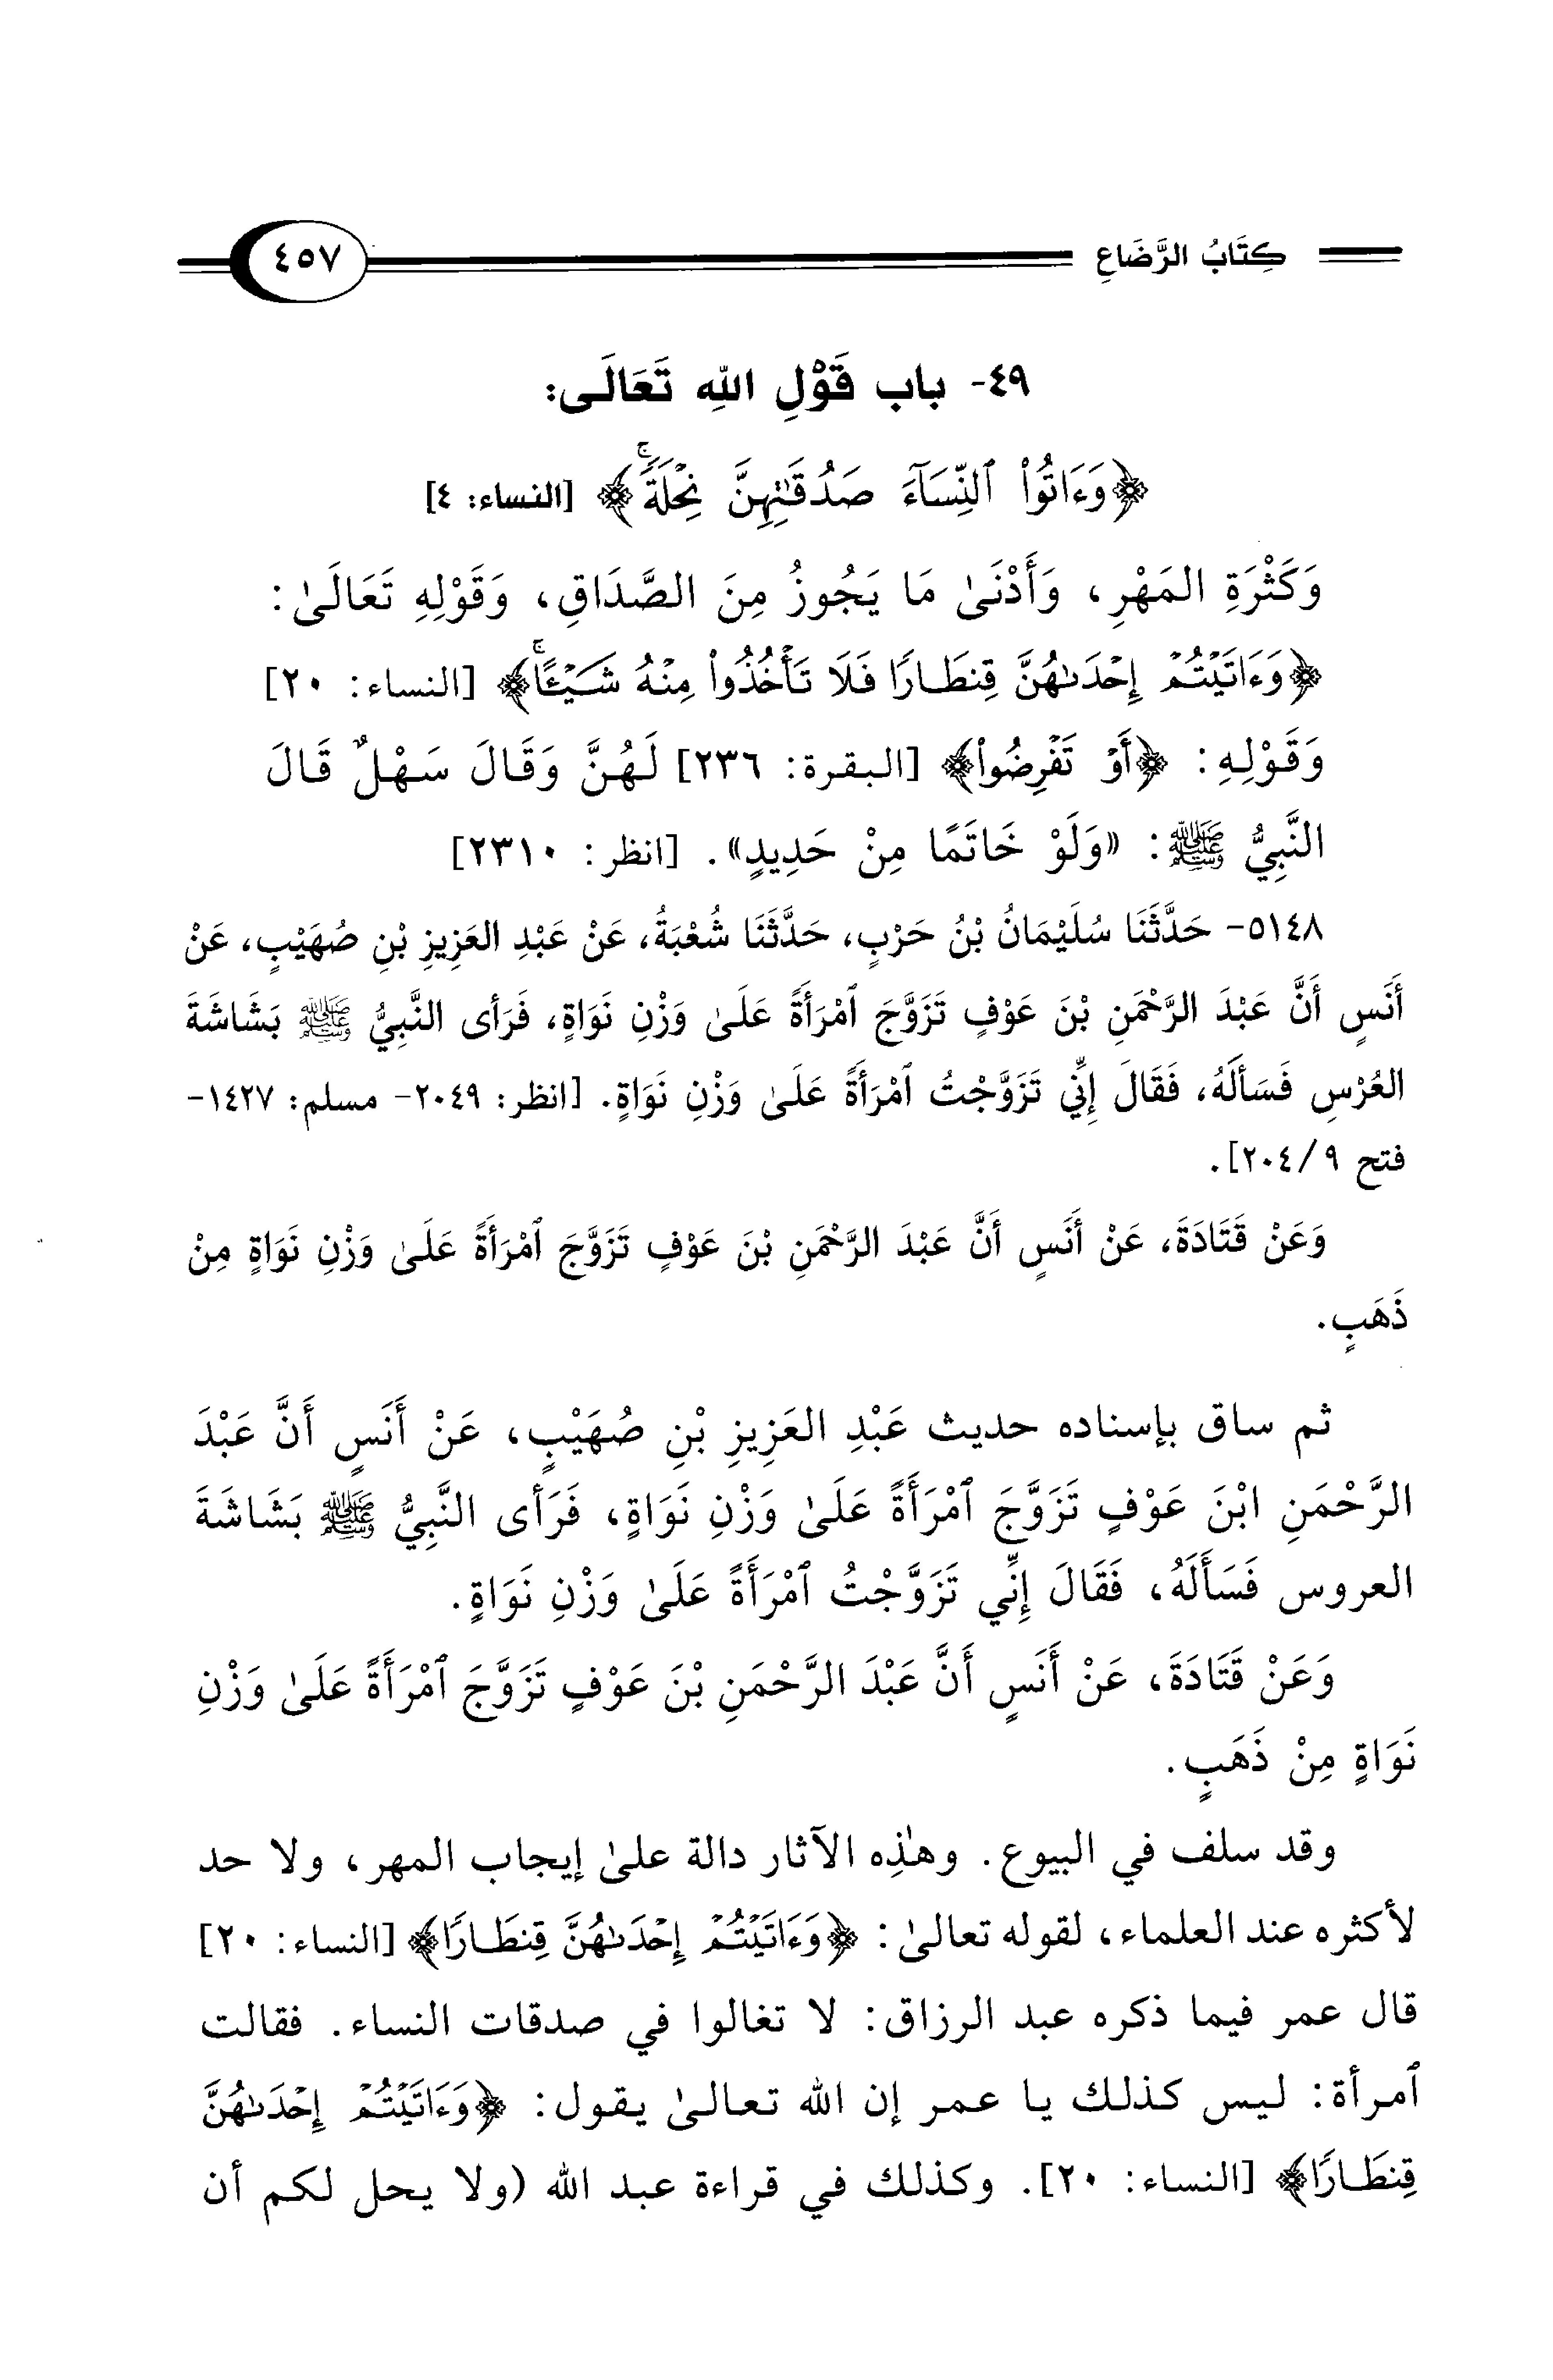 كِتَابُ الرَّضَاعِ
٤٥٧
٤٩- باب قَوْلِ اللهِ تَعَالَى:
﴿وَءَاتُوا۟ ٱلنِّسَآءَ صَدُقَـٰتِهِنَّ نِحْلَةًۚ﴾ [النساء: ٤]
وَكَثْرَةِ المَهْرِ، وَأَدْنَىٰ مَا يَجُوزُ مِنَ الصَّدَاقِ، وَقَوْلِهِ تَعَالَىٰ:
﴿وَءَاتَيْتُمْ إِحْدَىٰهُنَّ قِنطَارًا فَلَا تَأْخُذُوا۟ مِنْهُ شَيْـًٔاۚ﴾ [النساء: ٢٠]
وَقَوْلِهِ: ﴿أَوْ تَفْرِضُوا۟﴾ [البقرة: ٢٣٦] لَهُنَّ وَقَالَ سَهْلٌ قَالَ
النَّبِيُّ ﷺ: «وَلَوْ خَاتَمًا مِنْ حَدِيدٍ». [انظر: ٢٣١٠]
٥١٤٨- حَدَّثَنَا سُلَيْمَانُ بْنُ حَرْبٍ، حَدَّثَنَا شُعْبَةُ، عَنْ عَبْدِ العَزِيزِ بْنِ صُهَيْبٍ، عَنْ
أَنَسٍ أَنَّ عَبْدَ الرَّحْمَنِ بْنَ عَوْفٍ تَزَوَّجَ ٱمْرَأَةً عَلَىٰ وَزْنِ نَوَاةٍ، فَرَأى النَّبِيُّ ﷺ بَشَاشَةَ
العُرْسِ فَسَأَلَهُ، فَقَالَ إِنِّي تَزَوَّجْتُ ٱمْرَأَةً عَلَىٰ وَزْنِ نَوَاةٍ. [انظر: ٢٠٤٩- مسلم: ١٤٢٧-
فتح ٩/ ٢٠٤].
وَعَنْ قَتَادَةَ، عَنْ أَنَسٍ أَنَّ عَبْدَ الرَّحْمَنِ بْنَ عَوْفٍ تَزَوَّجَ ٱمْرَأَةً عَلَىٰ وَزْنِ نَوَاةٍ مِنْ
ذَهَبٍ.
ثم ساق بإسناده حديث عَبْدِ العَزِيزِ بْنِ صُهَيْبٍ، عَنْ أَنَسٍ أَنَّ عَبْدَ
الرَّحْمَنِ ابْنَ عَوْفٍ تَزَوَّجَ ٱمْرَأَةً عَلَىٰ وَزْنِ نَوَاةٍ، فَرَأى النَّبِيُّ ﷺ بَشَاشَةَ
العروس فَسَأَلَهُ، فَقَالَ إِنِّي تَزَوَّجْتُ ٱمْرَأَةً عَلَىٰ وَزْنِ نَوَاةٍ.
وَعَنْ قَتَادَةَ، عَنْ أَنَسٍ أَنَّ عَبْدَ الرَّحْمَنِ بْنَ عَوْفٍ تَزَوَّجَ ٱمْرَأَةً عَلَىٰ وَزْنِ
نَوَاةٍ مِنْ ذَهَبٍ.
وقد سلف في البيوع. وهٰذِه الآثار دالة علىٰ إيجاب المهر، ولا حد
لأكثره عند العلماء، لقوله تعالىٰ: ﴿وَءَاتَيْتُمْ إِحْدَىٰهُنَّ قِنطَارًا﴾ [النساء: ٢٠]
قال عمر فيما ذكره عبد الرزاق: لا تغالوا في صدقات النساء. فقالت
ٱمرأة: ليس كذلك يا عمر إن الله تعالىٰ يقول: ﴿وَءَاتَيْتُمْ إِحْدَىٰهُنَّ
قِنطَارًا﴾ [النساء: ٢٠]. وكذلك في قراءة عبد الله (ولا يحل لكم أن